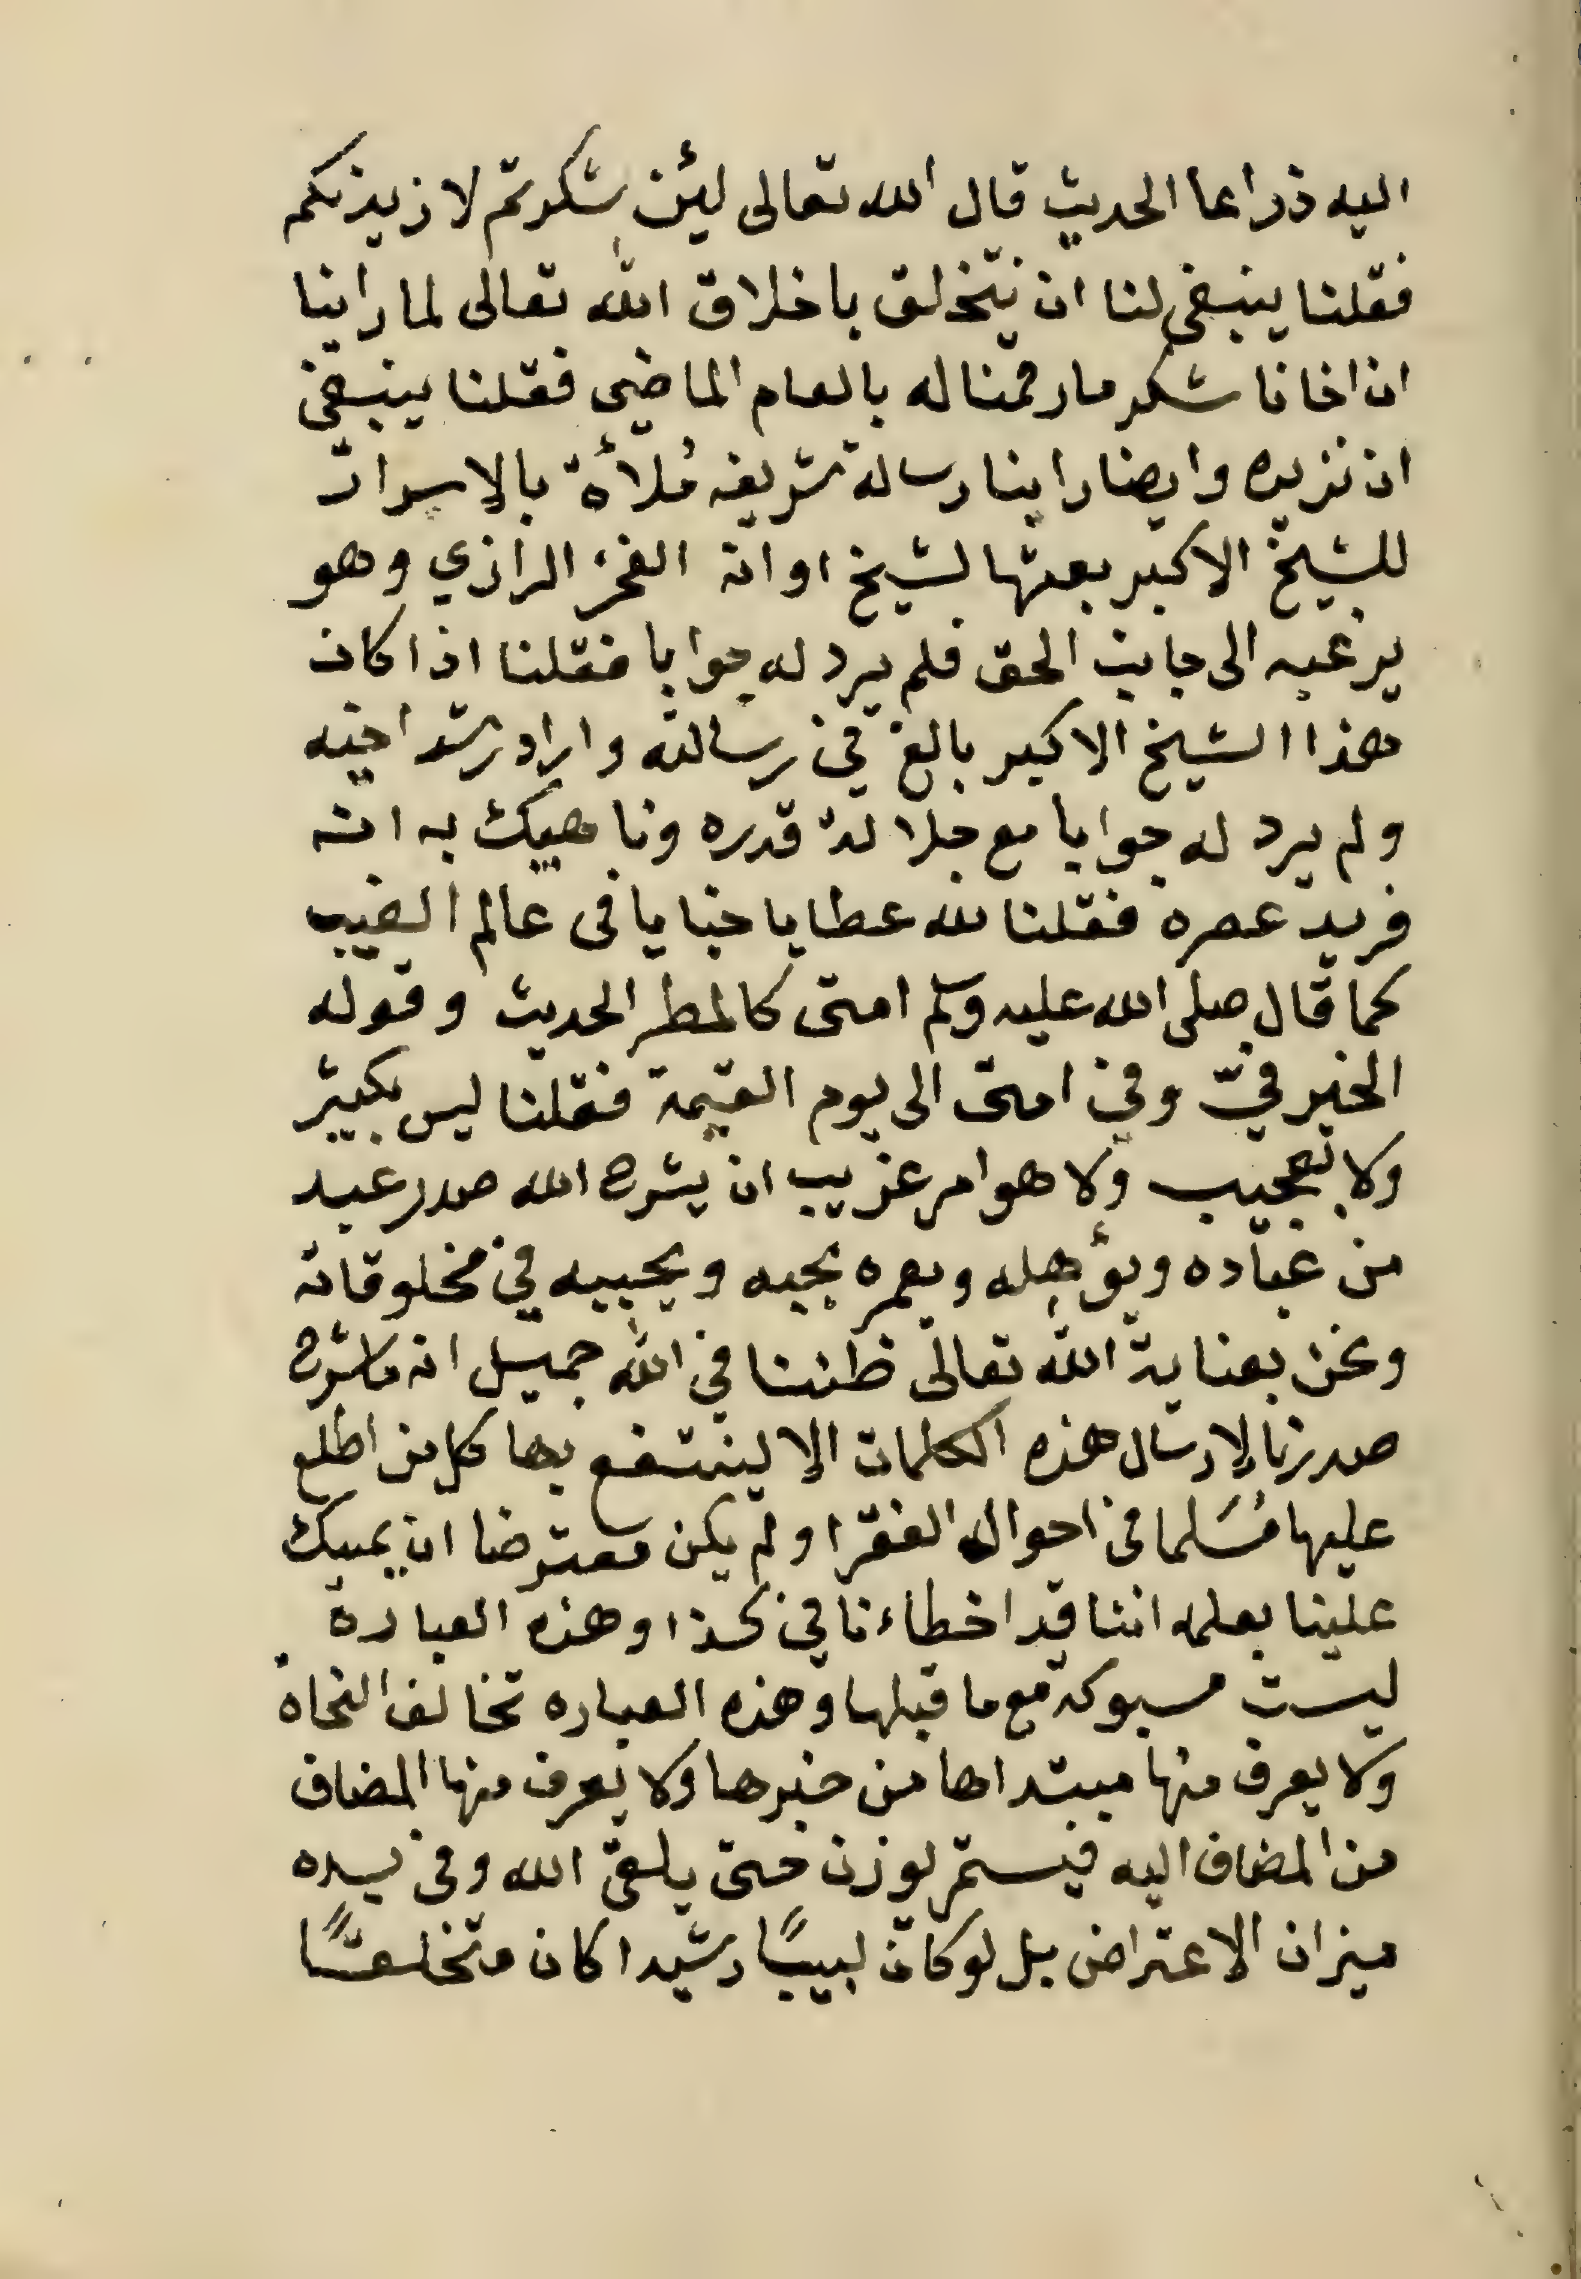 اليه ذراعا الحديث قال الله تعالى ليئن شكرتم لازيدنكم
فقلنا ينبغي لنا ان نتخلق باخلاق الله تعالى لما راينا
ان اخانا شكر ما رقمناله بالعام الماضي فقلنا ينبغي
ان نزيده وايضا راينا رسالة شريفه مُلأة بالاسرار
للشيخ الاكبر بعثها لشيخ اوانه الفخر الرازي وهو
يرغبه الى جانب الحق فلم يرد له جوابا فقلنا اذا كان
هذا الشيخ الاكبر بالغ في رسالته واراد رشد اخيه
ولم يرد له جوابا مع جلالة قدره وناهيك به انه
فريد عصره فقلنا لله عطايا خبايا في عالم الغيب
كما قال صلى الله عليه وسلم امتى كالمطر الحديث وقوله
الخير فيّ وفي امتى الى يوم القيمة فقلنا ليس بكبير
ولا بعجيب ولا هو امر غريب ان يشرح الله صدر عبد
من عباده ويؤهله ويعمره بحبه ويحببه في مخلوقاته
ونحن بعناية الله تعالى ظننا في الله جميل انه ما شرح
صدرنا لارسال هذه الكلمات الا لينتفع بها كل من اطلع
عليها مُسَلما في احوال الفقرا ولم يكن معترضا ان يمسك
علينا بعلمه اننا قد اخطاءنا في كذا وهذه العبارة
ليست مسبوكة مع ما قبلها وهذه العباره تخالف النحاة
ولا يعرف منها مبتداها من خبرها ولا يعرف منها المضاف
من المضاف اليه فيستمر يوزن حتى يلقى الله وفي يده
ميزان الاعتراض بل لو كان لبيبًا رشيدا كان متخلقًا